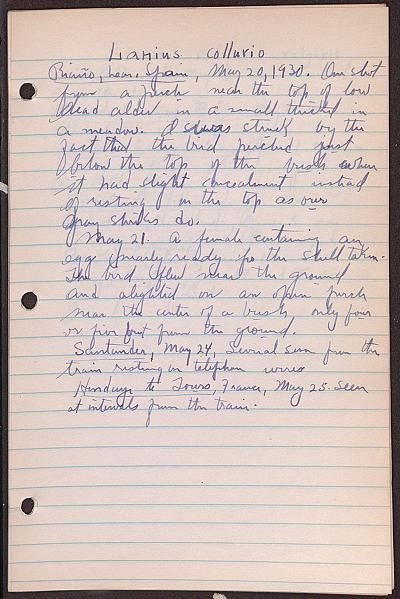 Lanius collurio
Riaño, Leon, Spain, May 20, 1930. One shot
from a perch near the top of low
dead alder in a small thicket in
a meadow. I was struck by the
fact that the bird perched just
below the top of the bush where
it had slight concealment instead
of resting on the top as our
gray shrikes do.
May 21. A female containing an
egg nearly ready for the shell taken.
The bird flew near the ground
and alighted on an open perch
near the center of a bush, only four
or five feet from the ground.
Santander, May 24, Several seen from the
train resting on telephone wires
Hendaye to Tours, France, May 25. Seen
at intervals from the train.